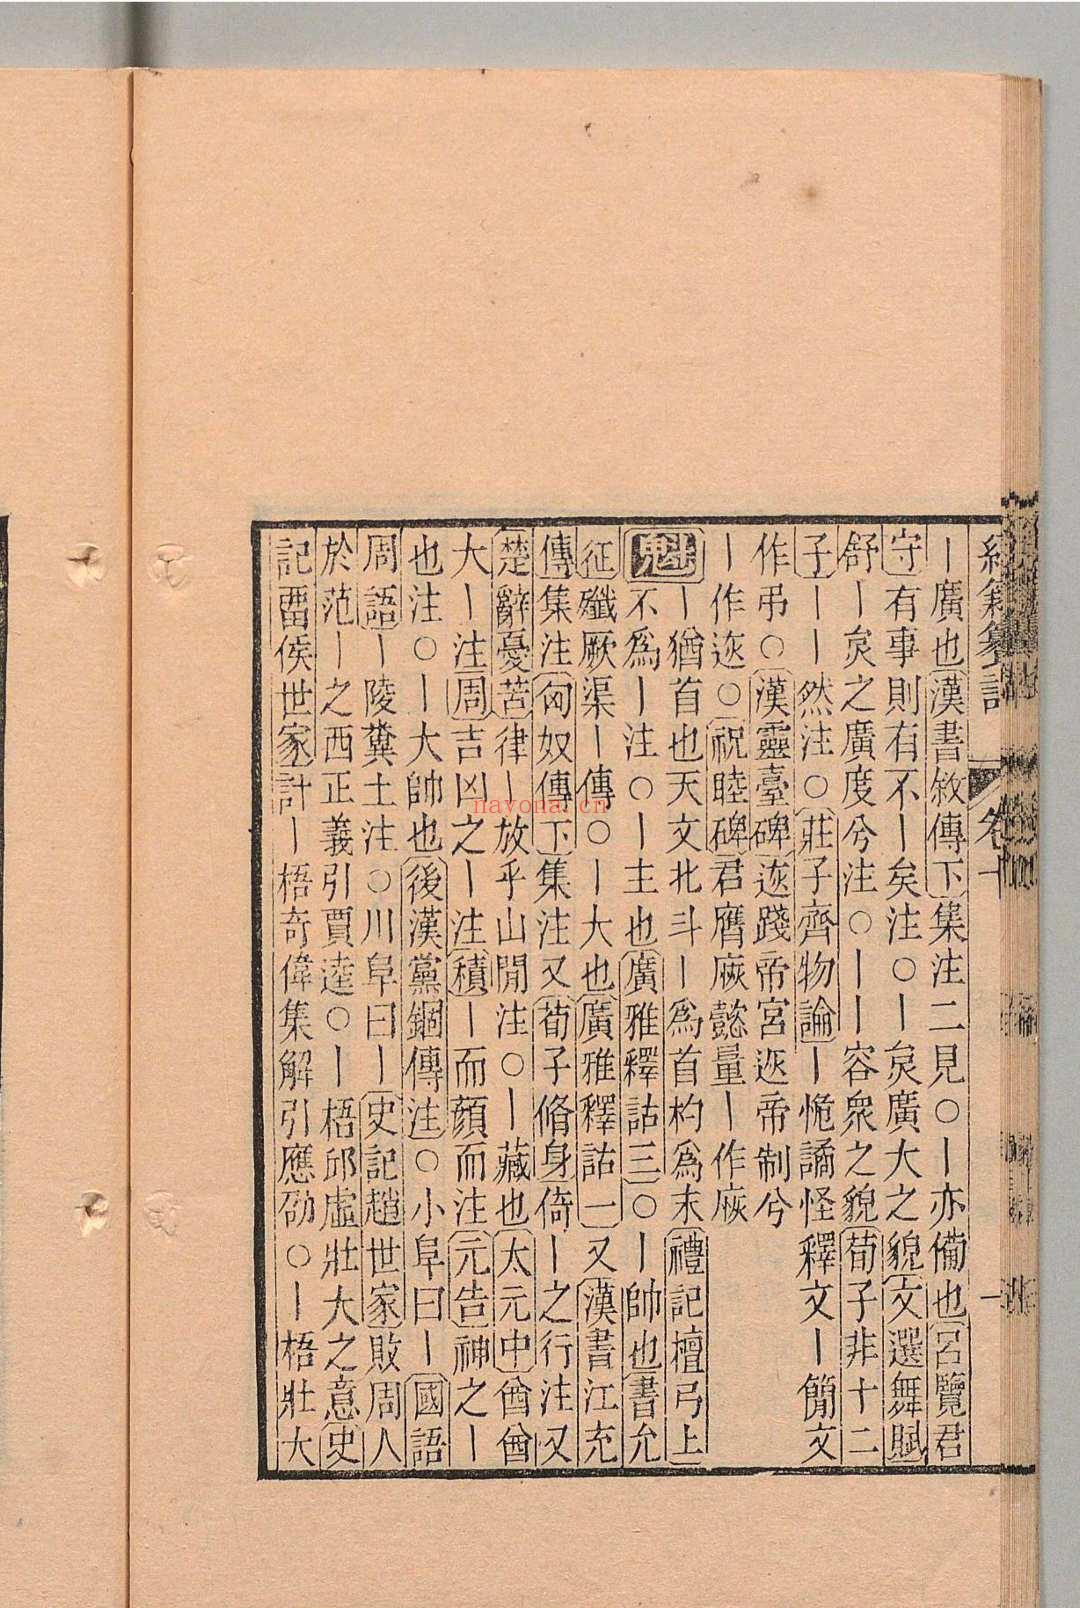 經籍籑詁 卷十 一
丨廣也漢書敘傳下集注二見○丨亦備也呂覽君
守有事則有不丨矣注○丨㫐廣大之貌文選舞賦
舒丨㫐之廣度兮注○丨丨容衆之貌荀子非十二
子丨丨然注○莊子齊物論丨恑譎怪釋文丨簡文
作弔○漢靈臺碑㳠踐帝宮㳠帝制兮
丨作㳠○祝睦碑君膺㾱懿量丨作㾱
魁丨猶首也天文北斗丨爲首杓爲末禮記檀弓上
不爲丨注○丨主也廣雅釋詁三○丨帥也書允
征殲厥渠丨傳○丨大也廣雅釋詁一又漢書江充
傳集注匈奴傳下集注又荀子脩身倚丨之行注又
楚辭憂苦律丨放乎山閒注○丨藏也太元中酋酋
大丨注周吉凶之丨注積丨而顏而注元告神之丨
也注○丨大帥也後漢黨錮傳注○小阜曰丨國語
周語丨陵糞土注○川阜曰丨史記趙世家敗周人
於范丨之西正義引賈逵○丨梧邱虛壯大之意史
記畱侯世家計丨梧奇偉集解引應劭○丨梧壯大
nayona.cn